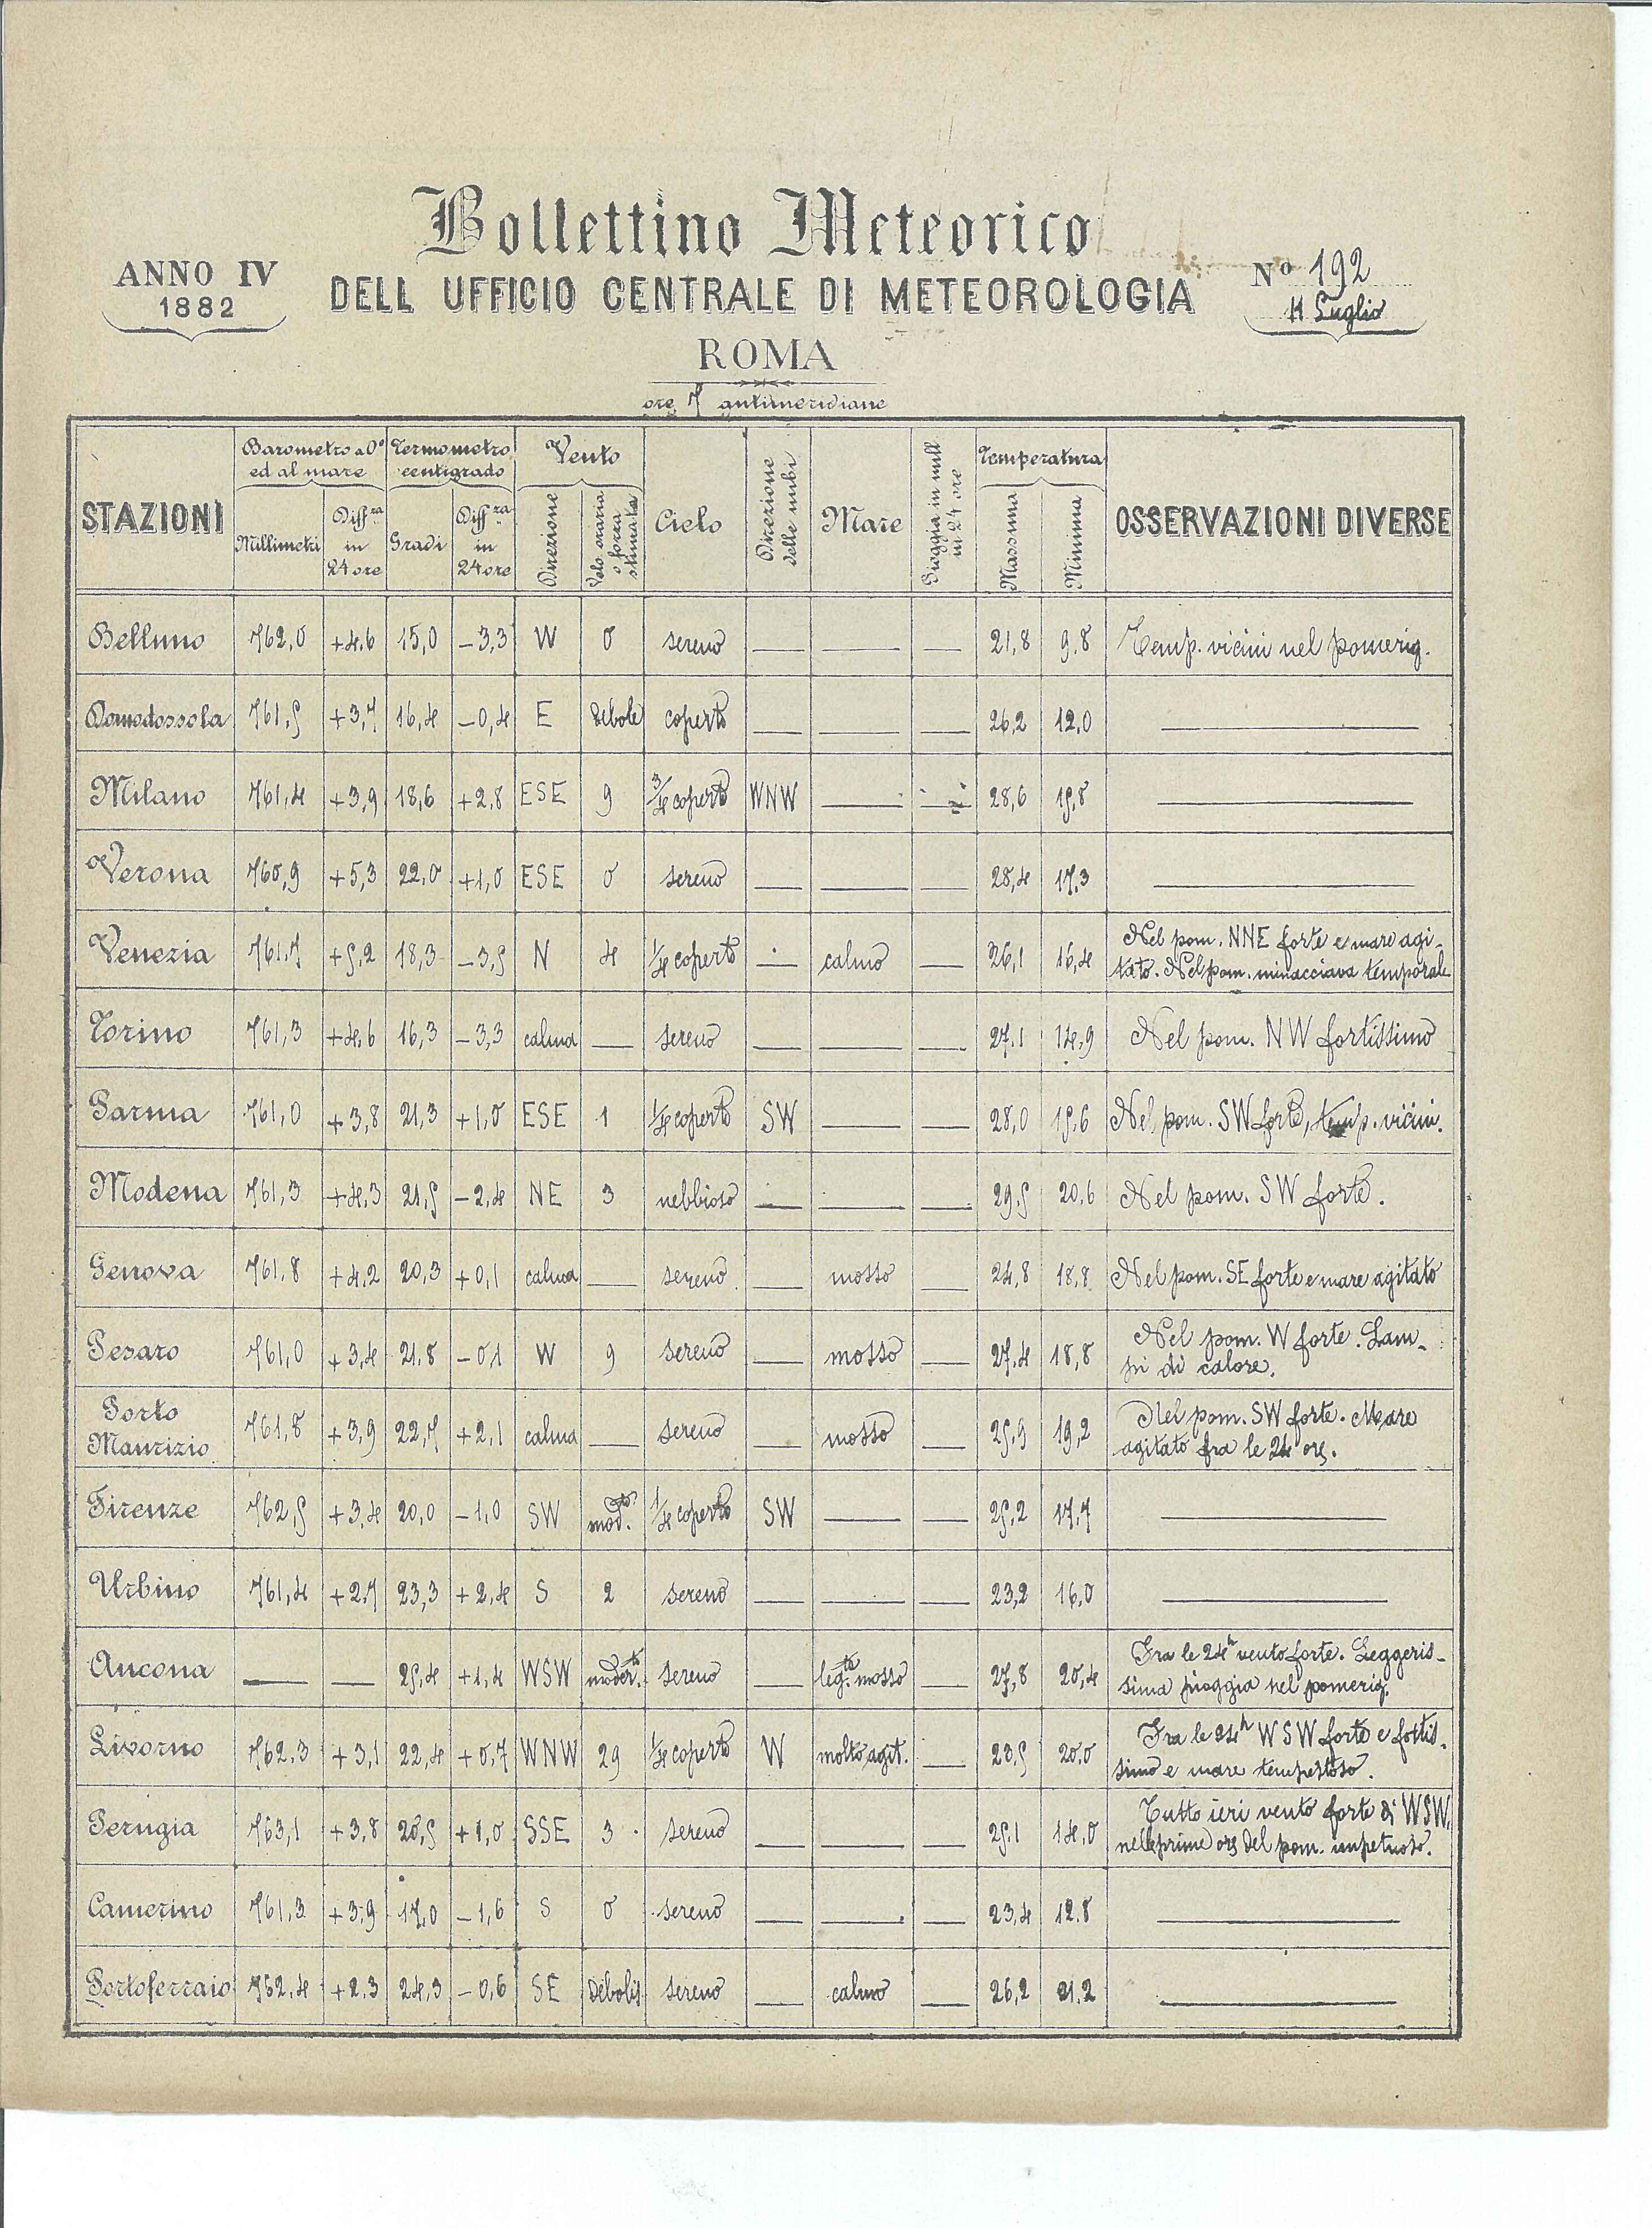 Bollettino Meteorico
ANNO IV
1882
DELL UFFICIO CENTRALE DI METEOROLOGIA
Nº 192
11 Luglio
ROMA
ore 7 antimeridiane
STAZIONI
Barometro a 0° ed al mare
Millimetri
Diffra in 24 ore
Termometro centigrado
Gradi
Diffra in 24 ore
Vento
Direzione
Velo oraria o forza stimata
Cielo
Direzione delle nubi
Mare
Pioggia in mill in 24 ore
Temperatura
Massima
Minima
OSSERVAZIONI DIVERSE
Belluno 762,0 +4,6 15,0 -3,3 W 0 sereno — — — 21,8 9,8 Temp. vicini nel pomerig.
Domodossola 761,5 +3,7 16,4 -0,4 E debole coperto — — — 26,2 12,0 —
Milano 761,4 +3,9 18,6 +2,8 ESE 9 3/4 coperto WNW — — 28,6 15,8 —
Verona 760,9 +5,3 22,0 +1,0 ESE 0 sereno — — — 28,4 17,3 —
Venezia 761,7 +5,2 18,3 -3,5 N 4 1/4 coperto — calmo — 26,1 16,4 Nel pom. NNE forte e mare agi-
tato. Nel pom. minacciava temporale
Torino 761,3 +4,6 16,3 -3,3 calma — sereno — — — 27,1 14,9 Nel pom. NW fortissimo
Parma 761,0 +3,8 21,3 +1,0 ESE 1 1/4 coperto SW — — 28,0 15,6 Nel pom. SW forte, temp. vicini.
Modena 761,3 +4,3 21,5 -2,4 NE 3 nebbioso — — — 29,5 20,6 Nel pom. SW forte.
Genova 761,8 +4,2 20,3 +0,1 calma — sereno — mosso — 24,8 18,8 Nel pom. SE forte e mare agitato
Pesaro 761,0 +3,4 21,8 -0,1 W 9 sereno — mosso — 27,4 18,8 Nel pom. W forte. Lam-
pi di calore.
Porto Maurizio 761,8 +3,9 22,7 +2,1 calma — sereno — mosso — 25,9 19,2 Nel pom. SW forte. Mare
agitato fra le 24 ore.
Firenze 762,5 +3,4 20,0 -1,0 SW modto. 1/4 coperto SW — — 25,2 17,7 —
Urbino 761,4 +2,7 23,3 +2,4 S 2 sereno — — — 23,2 16,0 —
Ancona — — 25,4 +1,4 WSW moderto. sereno — legte. mosso — 27,8 20,4 Fra le 24h vento forte. Leggeris-
sima pioggia nel pomerig.
Livorno 762,3 +3,1 22,4 +0,7 WNW 29 1/4 coperto W molto agit. — 23,5 20,0 Fra le 24h WSW forte e fortis-
simo e mare tempestoso.
Perugia 763,1 +3,8 20,5 +1,0 SSE 3 sereno — — — 25,1 14,0 Tutto ieri vento forte di WSW,
nelle prime ore del pom. impetuoso.
Camerino 761,3 +3,9 17,0 -1,6 S 0 sereno — — — 23,4 12,8 —
Portoferraio 762,4 +2,3 24,3 -0,6 SE debolis sereno — calmo — 26,2 21,2 —